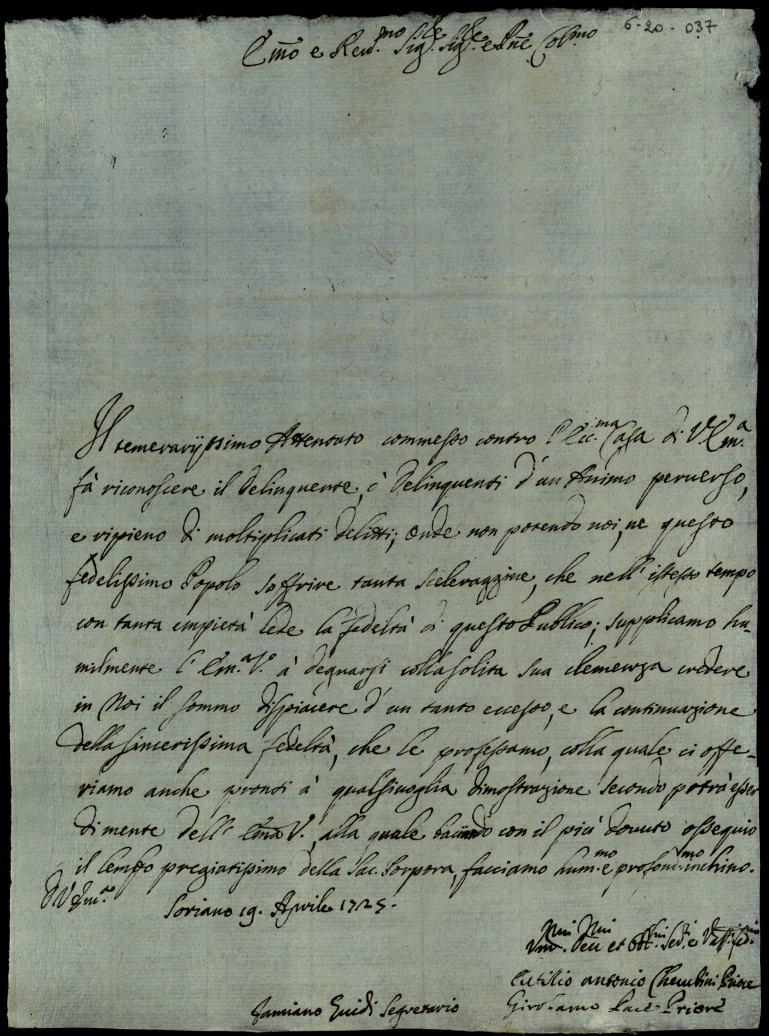 6-20-037
Emo e Rev.mo Sig.re Sig.re e Pne Col.mo
Il temerarijssimo Attentato commesso contro l'Ecc.ma Casa di V. Em.a
fà riconoscere il Delinquente, ò Delinquenti d'un Animo perverso,
e ripieno di moltiplicati delitti; onde non potendo noi, ne questo
fedelissimo Popolo soffrire tanta sceleraggine, che nell'istesso tempo
con tanta empietà lede la fedeltà di questo Publico; supplicamo hu-
milmente l'Em.a V.a à degnarsi colla solita sua clemenza credere
in Noi il sommo dispiacere d'un tanto eccesso, e la continuazione
della sincerissima fedeltà, che le professamo, colla quale ci offe-
riamo anche pronti à qualsivoglia dimostrazione secondo potrà esser
di mente dell'Ema V., alla quale baciando con il più dovuto ossequio
il lembo pregiatissimo della Sac. Porpora, facciamo hum.mo e profond.mo inchino.
D. V. Em.a
Soriano 19. Aprile 1725.
Vmi. Dev. et Obl. Ser.i e Vass.i fed.mi
Cutilio Antonio Cherubini Priore
Damiano Guidi Segretario
Girolamo Pace Priore